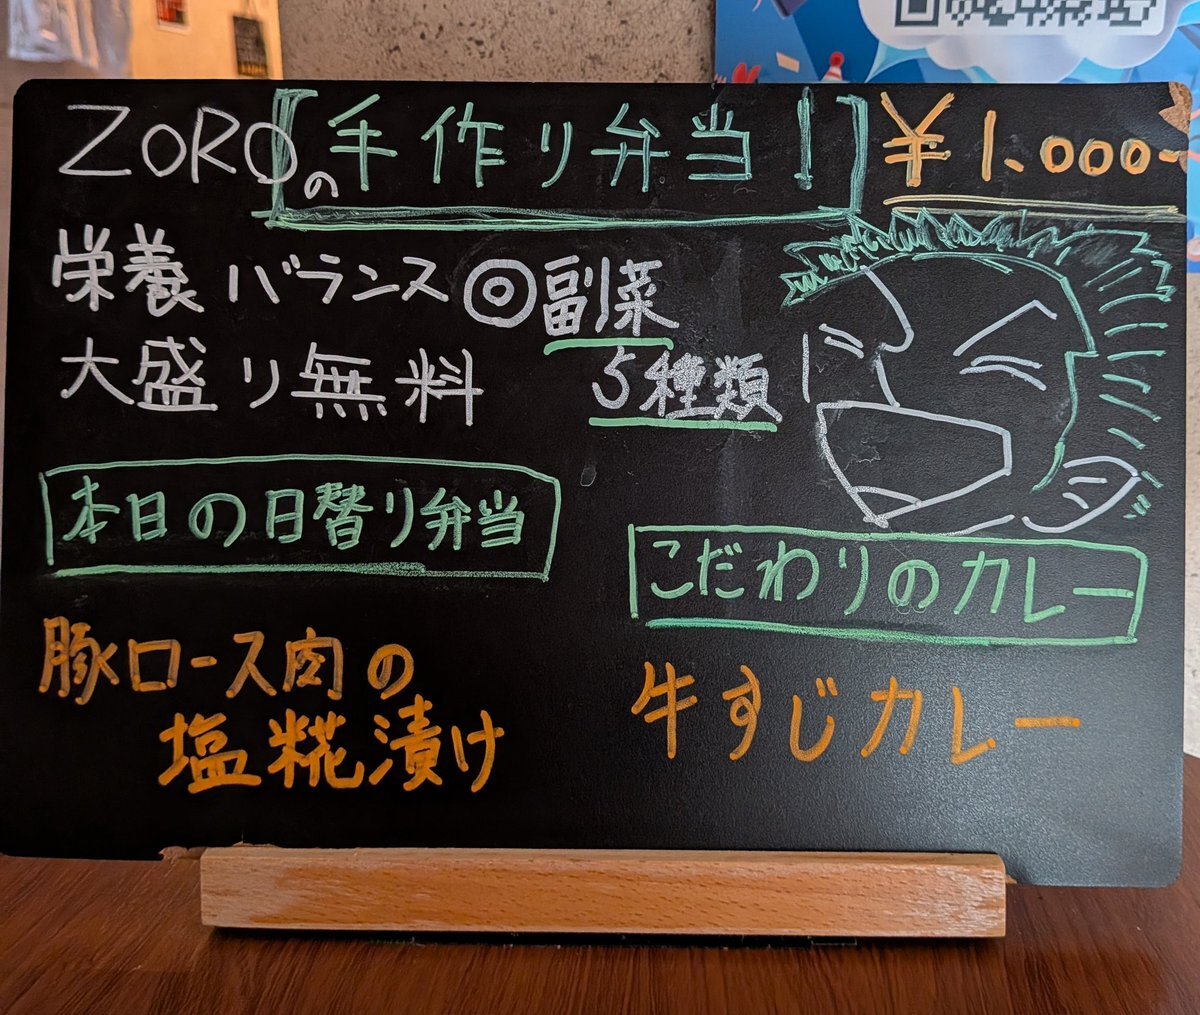 ZOROの手作り弁当! ¥1.000-
栄養バランス◎副菜
大盛り無料 5種類
本日の日替り弁当
豚ロース肉の
塩糀漬け
こだわりのカレー
牛すじカレー